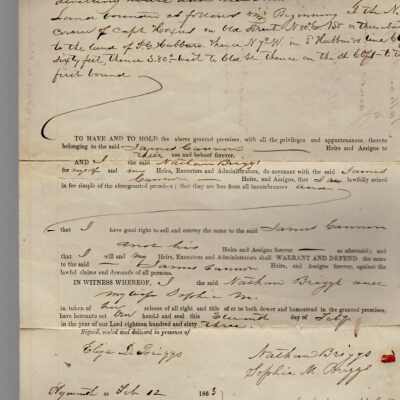 Land bounded as follows viz Beginning at the N
corner of Capt on Old Street N 80° E
to the land of thence N 7° W in line
sixty feet, thence S 80° West to Old St thence on the Old St to
first bound
TO HAVE AND TO HOLD the above granted premises, with all the privileges and appurtenances, thereto
belonging to the said James Cannon Heirs and Assigns to
their use and behoof forever.
AND I the said Nathan Briggs
for myself and my Heirs, Executors and Administrators, do covenant with the said James
Cannon Heirs, and Assigns, that I am lawfully seized
in fee simple of the aforegranted premises; that they are free from all incumbrances
that I have good right to sell and convey the same to the said James Cannon
and his Heirs and Assigns forever as aforesaid; and
that I will and my Heirs, Executors and Administrators shall WARRANT AND DEFEND the same
to the said James Cannon Heirs, and Assigns forever, against the
lawful claims and demands of all persons.
IN WITNESS WHEREOF, I the said Nathan Briggs and
my wife Sophia M.
in token of her release of all right and title of or to both dower and homestead in the granted premises,
have hereunto set our hand and seal this day of Feby
in the year of our Lord eighteen hundred and sixty three
Signed, sealed and delivered in presence of
Eliza D. Briggs
Nathan Briggs
Sophia M Briggs
Plymouth ss Feb 12 1863